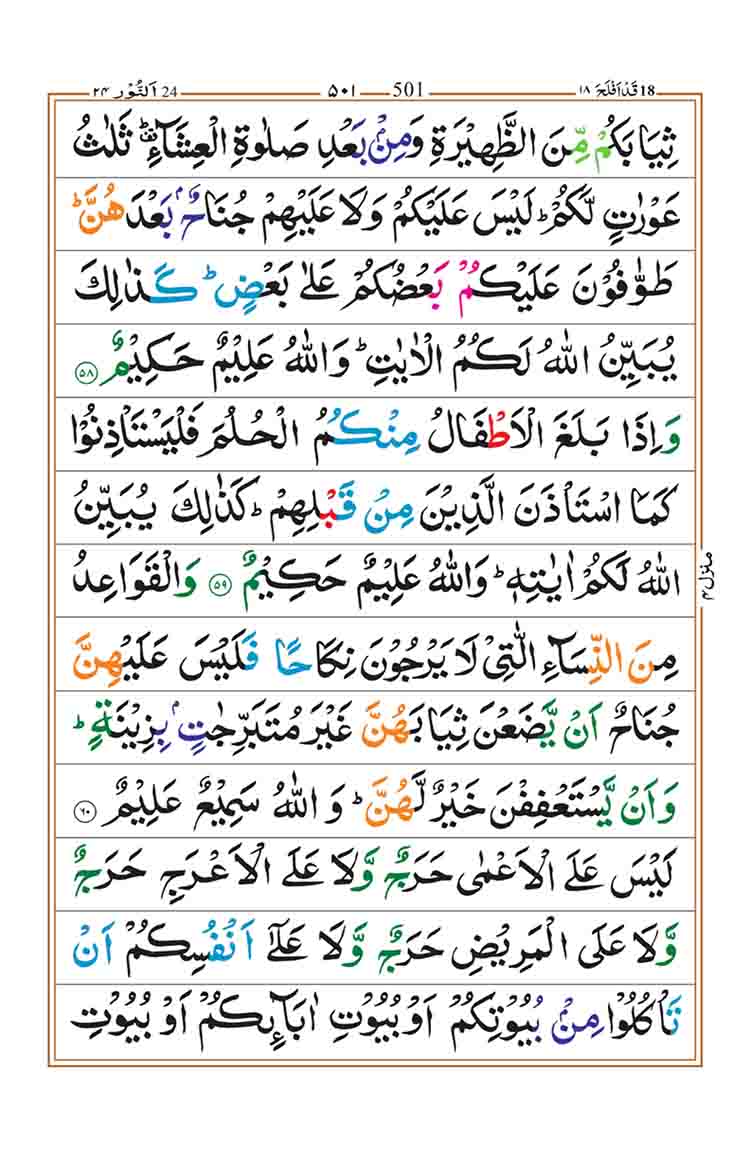 18 قَدْ اَفْلَحَ ١٨ 501 ۵۰۱ 24 اَلنُّوْر ٢۴
ثِيَابَكُمْ مِّنَ الظَّهِيْرَةِ وَمِنْۢ بَعْدِ صَلٰوةِ الْعِشَآءِ ؕ ثَلٰثُ
عَوْرٰتٍ لَّكُمْ ؕ لَيْسَ عَلَيْكُمْ وَلَا عَلَيْهِمْ جُنَاحٌۢ بَعْدَهُنَّ ؕ
طَوّٰفُوْنَ عَلَيْكُمْ بَعْضُكُمْ عَلٰى بَعْضٍ ؕ كَذٰلِكَ
يُبَيِّنُ اللّٰهُ لَكُمُ الْاٰيٰتِ ؕ وَاللّٰهُ عَلِيْمٌ حَكِيْمٌ ۵۸
وَاِذَا بَلَغَ الْاَطْفَالُ مِنْكُمُ الْحُلُمَ فَلْيَسْتَاْذِنُوْا
كَمَا اسْتَاْذَنَ الَّذِيْنَ مِنْ قَبْلِهِمْ ؕ كَذٰلِكَ يُبَيِّنُ
اللّٰهُ لَكُمْ اٰيٰتِهٖ ؕ وَاللّٰهُ عَلِيْمٌ حَكِيْمٌ ۵۹ وَالْقَوَاعِدُ
مِنَ النِّسَآءِ الّٰتِىْ لَا يَرْجُوْنَ نِكَاحًا فَلَيْسَ عَلَيْهِنَّ
جُنَاحٌ اَنْ يَّضَعْنَ ثِيَابَهُنَّ غَيْرَ مُتَبَرِّجٰتٍۢ بِزِيْنَةٍ ؕ
وَاَنْ يَّسْتَعْفِفْنَ خَيْرٌ لَّهُنَّ ؕ وَاللّٰهُ سَمِيْعٌ عَلِيْمٌ ۶۰
لَيْسَ عَلَى الْاَعْمٰى حَرَجٌ وَّلَا عَلَى الْاَعْرَجِ حَرَجٌ
وَّلَا عَلَى الْمَرِيْضِ حَرَجٌ وَّلَا عَلٰٓى اَنْفُسِكُمْ اَنْ
تَاْكُلُوْا مِنْۢ بُيُوْتِكُمْ اَوْ بُيُوْتِ اٰبَآئِكُمْ اَوْ بُيُوْتِ
منزل ۴